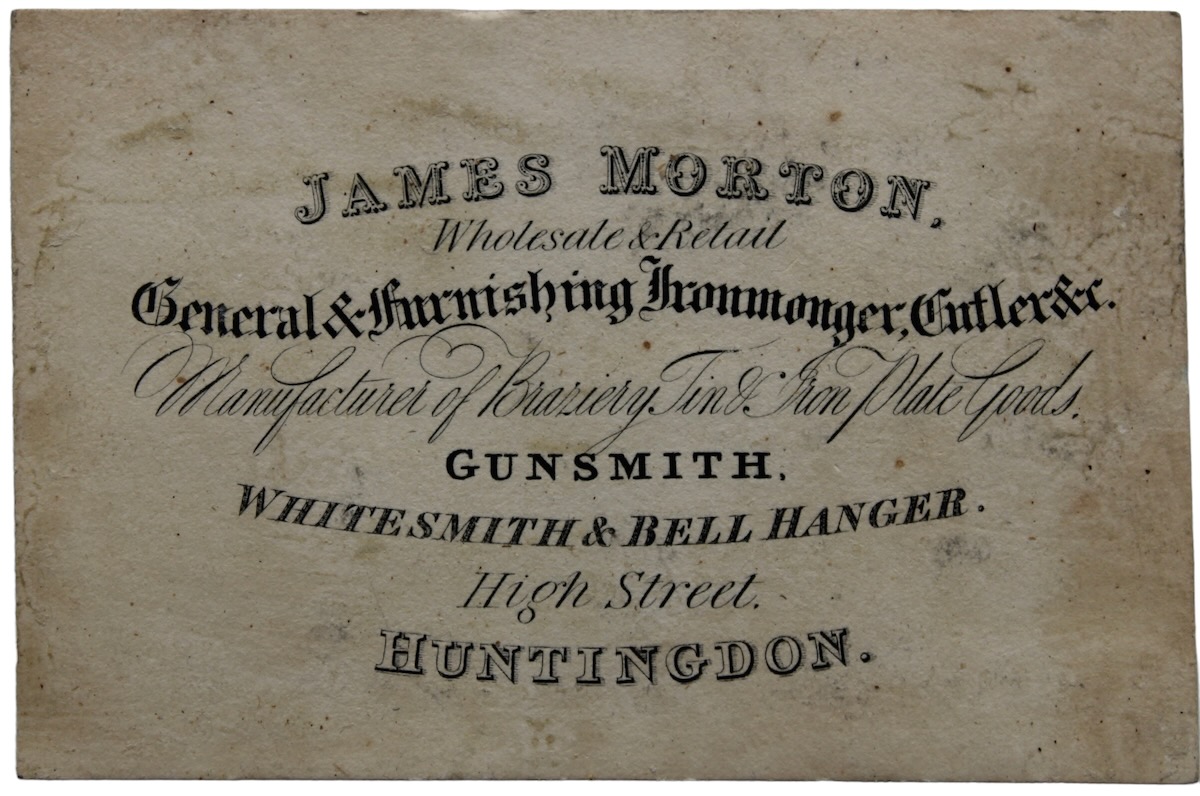 JAMES MORTON,
Wholesale & Retail
General & Furnishing Ironmonger, Cutler &c.
Manufacturer of Braziery Tin & Iron Plate Goods.
GUNSMITH,
WHITESMITH & BELL HANGER.
High Street.
HUNTINGDON.